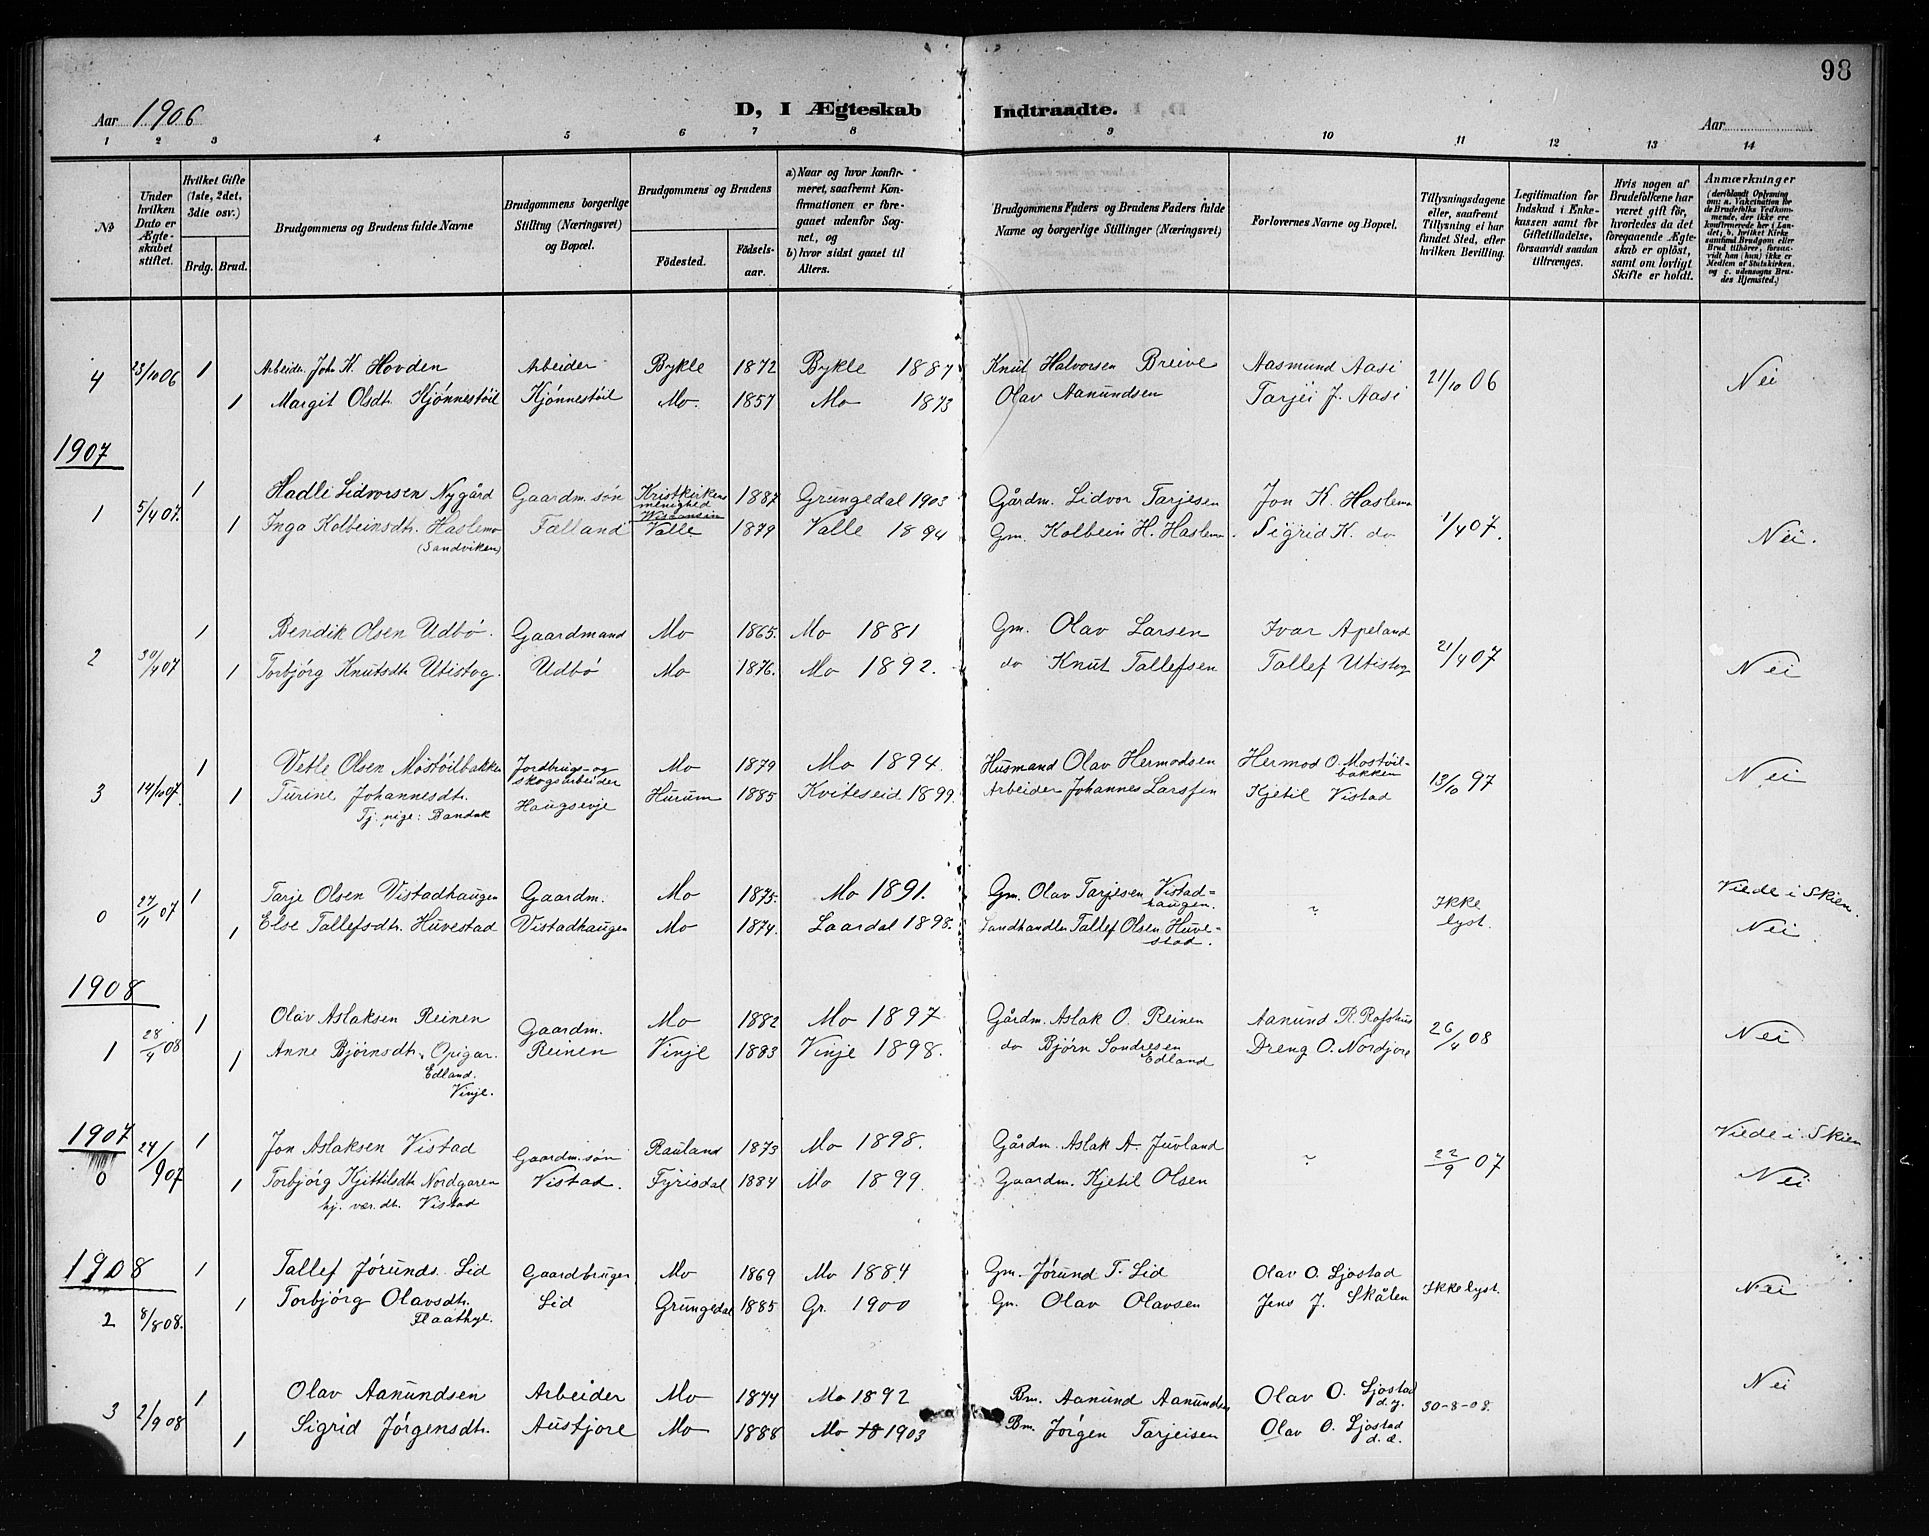 98
Aar 1906
D, I Ægteskab Indtraadte.
Aar
1 2 3 4 5 6 7 8 9 10 11 12 13 14
№
Under hvilken Dato er Ægteskabet stiftet.
Hvilket Gifte (1ste, 2det, 3die osv.)
Brdg. Brud.
Brudgommens og Brudens fulde Navne
Brudgommens borgerlige Stilling (Næringsvei) og Bopæl.
Brudgommens og Brudens
Fødested.
Fødselsaar.
a) Naar og hvor konfirmeret, saafremt Konfirmationen er foregaaet udenfor Sognet, og
b) hvor sidst gaaet til Alters.
Brudgommens Faders og Brudens Faders fulde Navne og borgerlige Stillinger (Næringsvei)
Forlovernes Navne og Bopæl.
Tillysningsdagene eller, saafremt Tillysning ei har fundet Sted, efter hvilken Bevilling.
Legitimation for Indskud i Enkekassen samt for Giftetilladelse, forsaavidt saadan tiltrænges.
Hvis nogen af Brudefolkene har været gift før, hvorledes da det foregaaende Ægteskab er opløst, samt om lovligt Skifte er holdt.
Anmærkninger
(deriblandt Oplysning om: a. Vakcination for de Brudefolks Vedkommende, der ikke ere konfirmerede her i Landet; b. hvilket Kirkesamfund Brudgom eller Brud tilhører, forsaavidt han (hun) ikke er Medlem af Statskirken, og c. udensogns Brudes Hjemsted.)
4 23/10 06 1 Arbeider John K. Hovden Arbeider Bykle 1872 Bykle 1887 Knut Halvorsen Breive Aasmund Aasi 21/10 06 Nei
1 Margit Olsdt. Kjønnestøil Kjønnestøil Mo. 1857 Mo 1873 Olav Aanundsen Tarjei J. Aasi
1907
1 5/4 07. 1 Hadle Lidvorsen Nygård Gaardm. søn Kristkirkens menighed Wisconsin 1887 Grungedal 1903 Gårdm. Lidvor Tarjesen Jon K. Haslemo 1/4 07.
1 Inga Kolbeinsdt. Haslemo (Sandviken) Falland Valle 1879 Valle 1894 Gm. Kolbein H. Haslemo. Sigrid K. do Nei.
2 30/4 07 1 Bendik Olsen Udbø. Gaardmand Mo 1865. Mo 1881 Gm. Olav Larsen Ivar Apeland 21/4 07
1 Torbjørg Knutsdt. Utistog. Udbø Mo 1876. Mo 1892. do Knut Tallefsen Tallef Utistog Nei
3 14/10 07. 1 Vetle Olsen Møstøilbakken Jordbrugs- og skogsarbeider Mo 1879 Mo 1894. Husmand Olav Hermodsen Hermod O. Mostøilbakken 13/10 97 Nei
1 Turine Johannesdt. Tj. pige: Bandak Haugsevje Hurum 1885 Kviteseid 1899. Arbeider Johannes Larssen Kjetil Vistad
0 27/11 07 1 Tarje Olsen Vistadhaugen Gaardm. Mo 1875. Mo 1891. Gm. Olav Tarjesen Vistadhaugen. " Ikke lyst. Viede i Skien.
1 Else Tallefsdt. Huvestad Vistadhaugen Mo 1874. Laardal 1898. Landhandler Tallef Olsen Huvestad. Nei
1908
1 28/4 08 1 Olav Aslaksen Reinen Gaardm. Mo 1882 Mo 1897 Gårdm. Aslak O. Reinen Aanund R. Rofshus 26/4 08 Nei
1 Anne Bjørnsdt. Opigar. Edland. Vinje. Reinen Vinje 1883 Vinje 1898. do Bjørn Sondresen Edland Dreng O. Nordjore
1907
0 24/9 07 1 Jon Aslaksen Vistad Gaardm. søn Rauland 1873 Mo 1898. Gårdm. Aslak A. Juvland " 22/9 07 Viede i Skien
1 Torbjørg Kjittilsdt. Nordgaren hj. vær. dt. Vistad Vistad. Fyrisdal 1884 Mo 1899 Gaardm. Kjetil Olsen Nei
1908
2 8/8 08. 1 Tallef Jørunds. Lid Gaardbruger Mo 1869 Mo 1884 Gm. Jørund T. Lid Olav O. Ljostad Ikke lyst. Nei
1 Torbjørg Olavsdt. Flaathyl. Lid Grungedal 1885 Gr. 1900 Gm. Olav Olavsen Jens J. Skålen
3 2/9 08 1 Olav Aanundsen Arbeider Mo 1874 Mo 1892 Bm. Aanund Aanundsen Olav O. Ljostad d.y. 30-8-08. Nei
1 Sigrid Jørgensdt. Austjore Mo 1888 Mo 18 1903 Bm. Jørgen Tarjeisen Olav O. Ljostad d. æ.